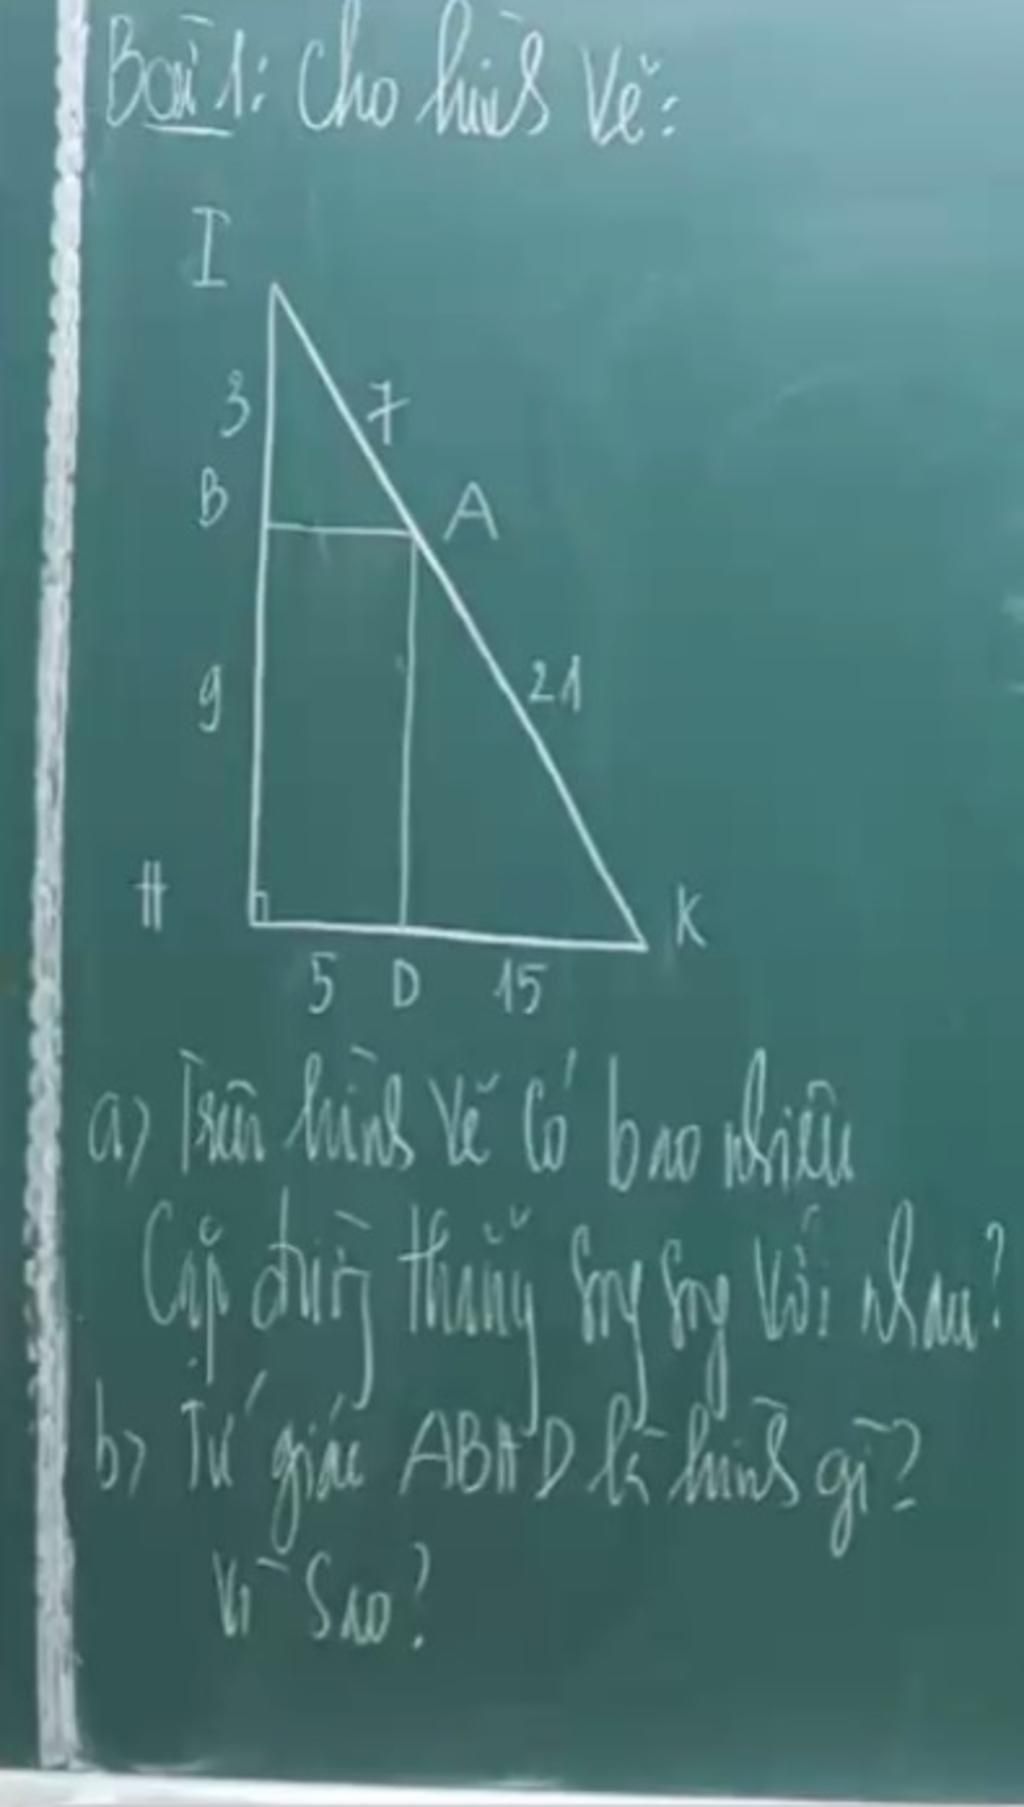 Bài 1: Cho hình vẽ:
I
3
7
B
A
9
21
H
K
5 D 15
a) Trên hình vẽ có bao nhiêu
Cặp đường thẳng song song với nhau?
b) Tứ giác ABHD là hình gì?
Vì Sao?